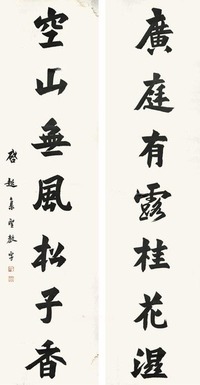 廣庭有露桂花濕
空山無風松子香
啓趙集聖教字